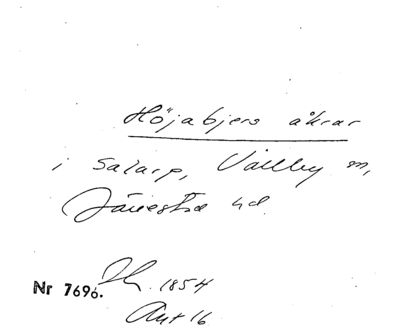 Höjabjers åkrar
i Salarp, Västby m,
hd.
Nr 7696. 1854
Akt 16